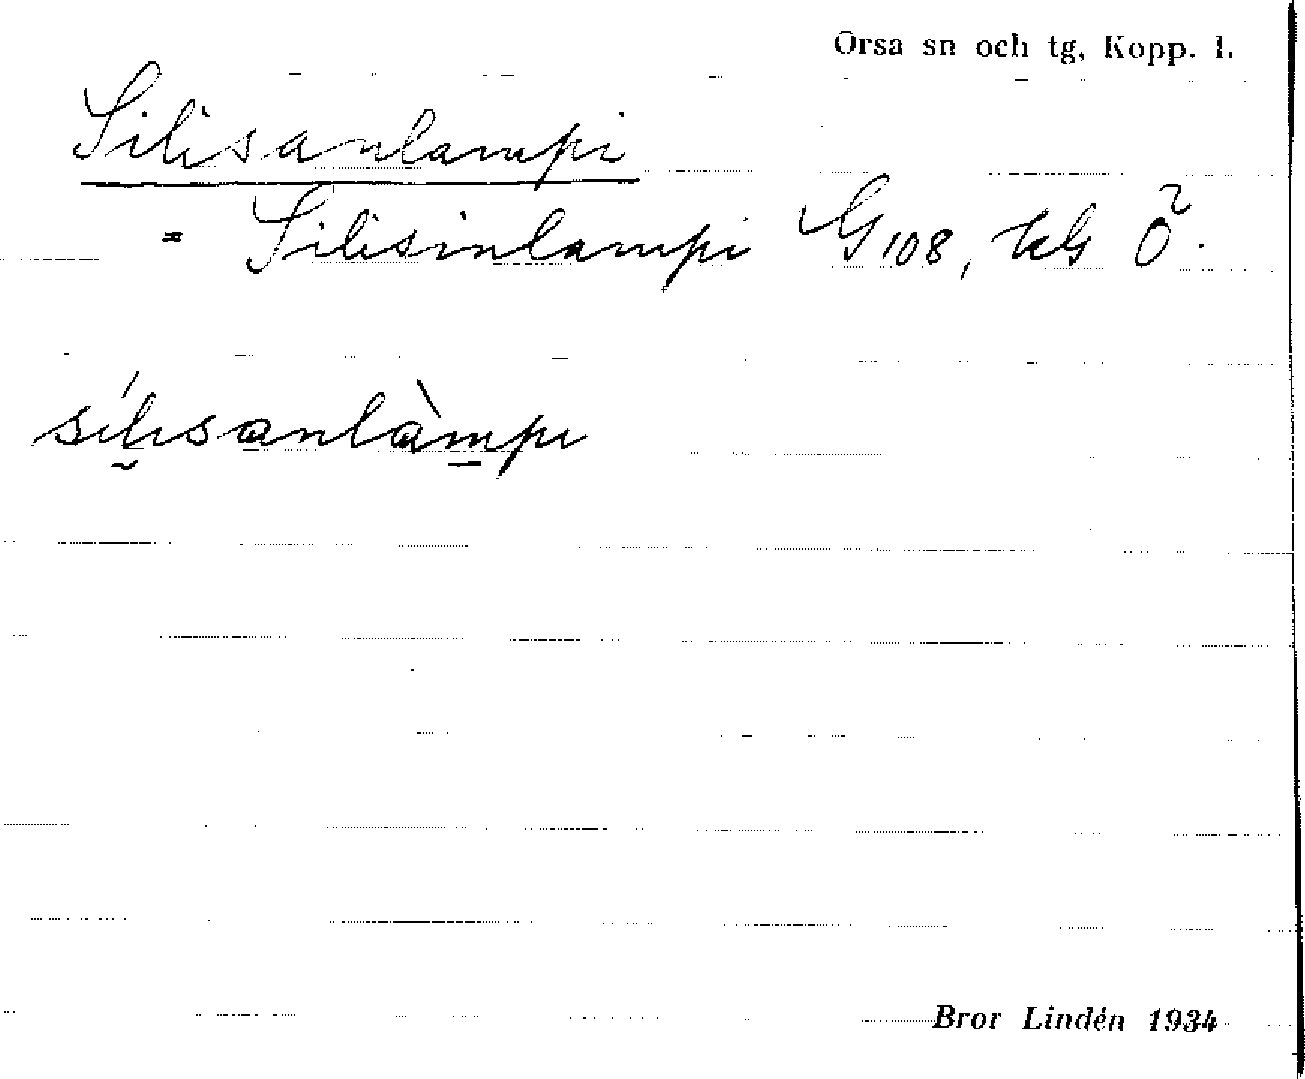 Orsa sn och tg, Kopp. l.
Silisanlampi
= Silisinlampi G 108, kG Ö.
sílisanlàmpi
Bror Lindén 1934